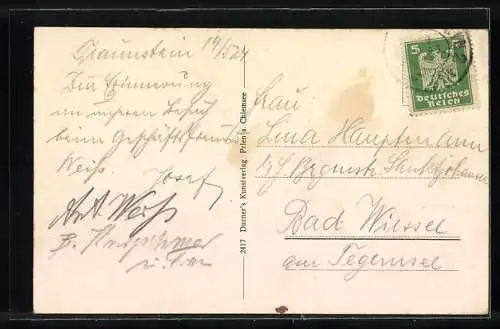 Traunstein 19/5 24
Zur Erinnerung
an unseren Besuch
beim Geschäftsfreund
Weiß. Josef
Ant. Weiß
2417 Durner's Kunstverlag, Prien a. Chiemsee
5 5
Deutsches
Reich
Frau
Lina Hauptmann
Bad Wiessee
am Tegernsee